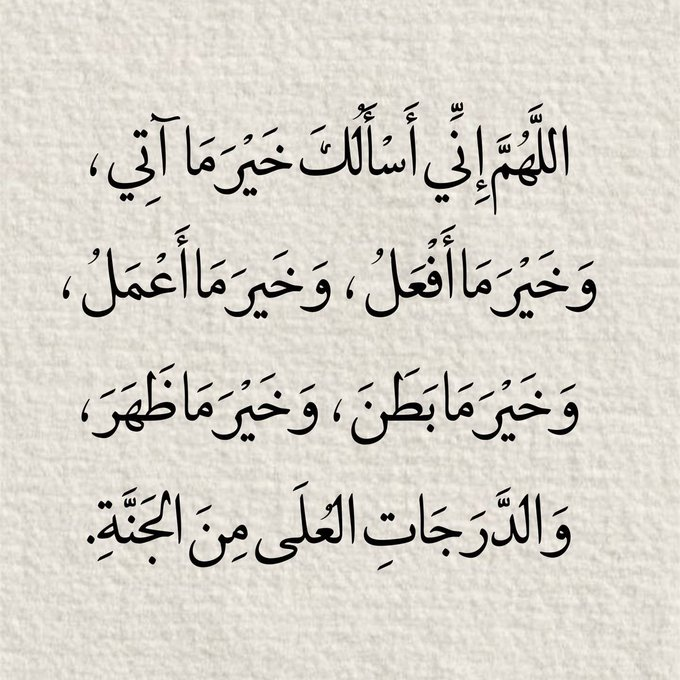 اللَّهُمَّ إِنِّي أَسْأَلُكَ خَيْرَ مَا آتِي ،
وَخَيْرَ مَا أَفْعَلُ ، وَخَيرَ مَا أَعْمَلُ ،
وَخَيْرَ مَا بَطَنَ ، وَخَيْرَ مَا ظَهَرَ ،
وَالدَّرَجَاتِ العُلَى مِنَ الجَنَّةِ.